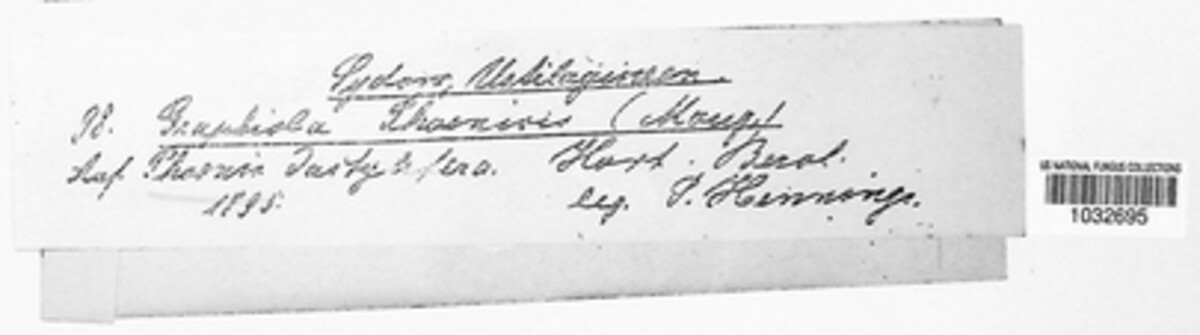 Sydow, Ustilagineen.
98. Graphiola Phoenicis (Moug.)
Auf Phoenix dactylifera. Hort. Berol.
1895. leg. P. Hennings.
US NATIONAL FUNGUS COLLECTIONS
1032695